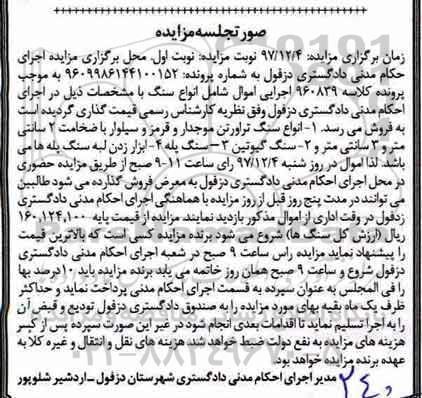 صورتجلسه مزایده
زمان برگزاری مزایده: ۹۷/۱۲/۴ نوبت مزایده: نوبت اول. محل برگزاری مزایده اجرای
حکام مدنی دادگستری دزفول به شماره پرونده: ۹۶۰۹۹۸۶۱۴۴۱۰۰۱۵۲ به موجب
پرونده کلاسه ۹۶۰۸۳۹ اجرایی اموال شامل انواع سنگ با مشخصات ذیل در اجرای
احکام مدنی دادگستری دزفول وفق نظریه کارشناس رسمی قیمت گذاری گردیده است
به فروش می رسد. ۱- انواع سنگ تراورتن موجدار و قرمز و سیلوار با ضخامت ۲ سانتی
متر و ۳ سانتی متر و ۲- سنگ گیوتین ۳- سنگ پله ۴- ابزار زدن لبه سنگ پله ها می
باشد. لذا اموال در روز شنبه ۹۷/۱۲/۴ رای ساعت ۱۱-۹ صبح از طریق مزایده حضوری
در محل اجرای احکام مدنی دادگستری دزفول به معرض فروش گذارده می شود طالبین
می توانند در مدت پنج روز قبل از روز مزایده با هماهنگی اجرای احکام مدنی دادگستری
زدفول در وقت اداری از اموال مذکور بازدید نمایند. مزایده از قیمت پایه ۱۶۰,۱۲۴,۱۰۰
ریال (ارزش کل سنگ ها) شروع می شود برنده مزایده کسی است که بالاترین قیمت
را پیشنهاد نماید مزایده راس ساعت ۹ صبح در شعبه اجرای احکام مدنی دادگستری
دزفول شروع و ساعت ۹ صبح همان روز خاتمه می یابد برنده مزایده باید ۱۰درصد بها
را فی المجلس به عنوان سپرده به قسمت اجرای احکام مدنی پرداخت نماید و حداکثر
ظرف یک ماه بقیه بهای مورد مزایده را به صندوق دادگستری دزفول تودیع و قبض آن
را به اجرا تسلیم نماید تا اقدامات بعدی انجام شود در غیر این صورت سپرده پس از کسر
هزینه های مزایده به نفع دولت ضبط خواهد شد. هزینه های نقل و انتقال و غیره کلا به
عهده برنده مزایده خواهد بود.
مدیر اجرای احکام مدنی دادگستری شهرستان دزفول ـ اردشیر شلوپور